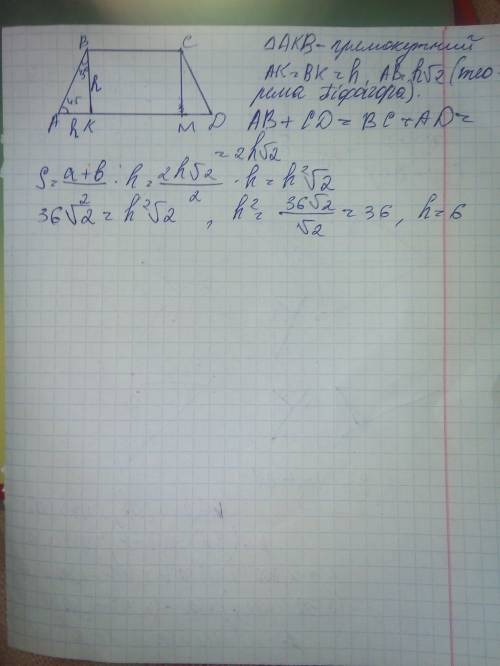 B C
45
h
A 45 h K M D
ΔAKB - прямокутний
AK = BK = h, AB = h√2 (тео
рема Піфагора).
AB + CD = BC + AD =
= 2h√2
S = a+b/2 · h = 2h√2/2 · h = h²√2
36√2 = h²√2 , h² = 36√2/√2 = 36, h = 6